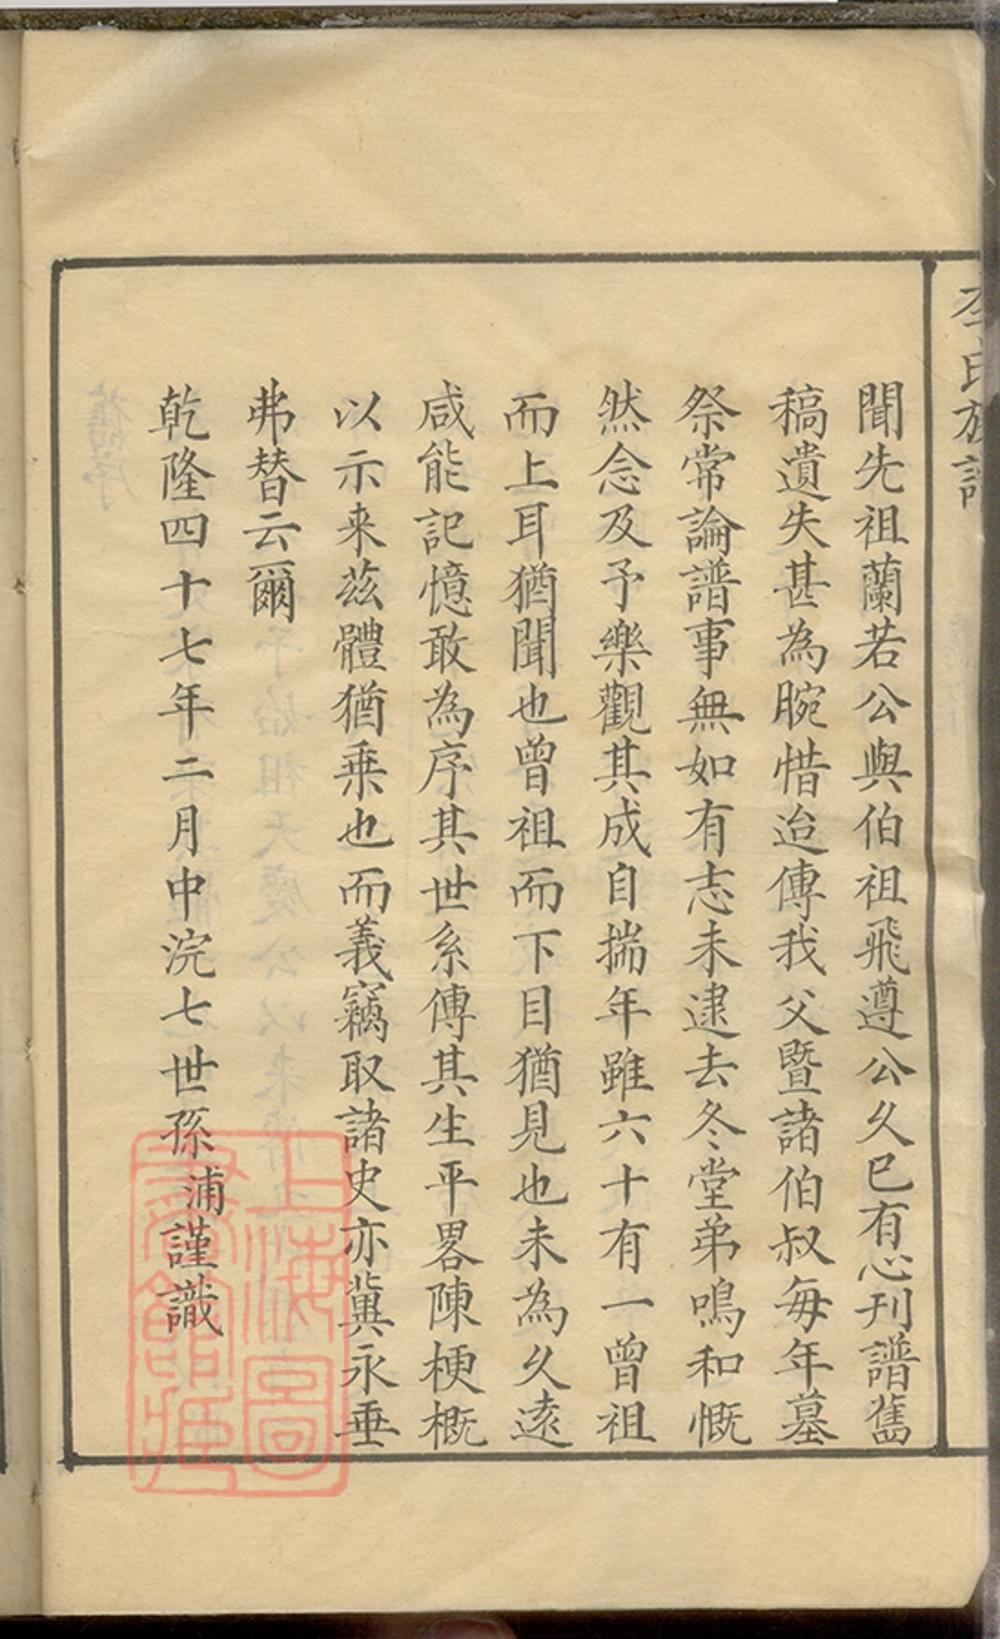 李氏族譜
聞先祖蘭若公與伯祖飛遵公久已有心刊譜舊
稿遺失甚為腕惜迨傳我父暨諸伯叔每年墓
祭常論譜事無如有志未逮去冬堂弟鳴和慨
然念及予樂觀其成自揣年雖六十有一曾祖
而上耳猶聞也曾祖而下目猶見也未為久遠
咸能記憶敢為序其世系傳其生平畧陳梗概
以示来茲體猶乗也而義竊取諸史亦冀永垂
弗替云爾
乾隆四十七年二月中浣七世孫浦謹識
上海圖書館藏